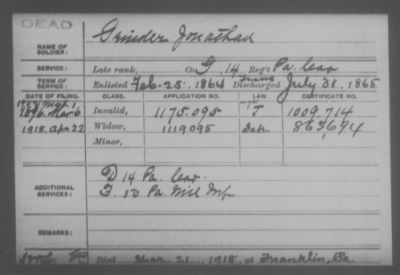 DEAD
NAME OF SOLDIER: Grinder Jonathan
SERVICE: Late rank, Co. G, 14 Reg't Pa. Cav.
TERM OF SERVICE: Enlisted Feb. 25, 1864 Discharged July 31, 1865
DATE OF FILING. CLASS. APPLICATION NO. LAW. CERTIFICATE NO.
Invalid, 1175.095 J 1009.714
1918. Apr. 22 Widow, 1119095 863,694
Minor,
ADDITIONAL SERVICES: D 14 Pa. Cav.
F. 50 Pa. Mil Inf
REMARKS:
Died Mar. 21, 1918, at Franklin, Pa.